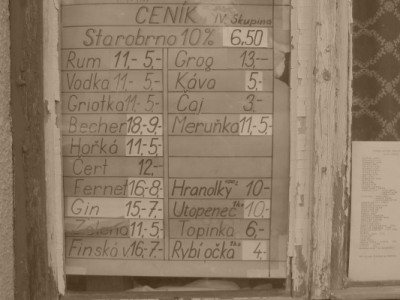 CENÍK IV. Skupina
Starobrno 10% 6,50
Rum 11,- 5,- Grog 13,-
Vodka 11,- 5,- Káva 5,-
Griotka 11,- 5,- Čaj 3,-
Becher 18,- 9,- Meruňka 11,- 5,-
Hořká 11,- 5,-
Čert 12,-
Fernet 16,- 8,- Hranolky 10,-
Gin 15,- 7,- Utopenec 10,-
Zelená 11,- 5,- Topinka 6,-
Finská v 16,- 7,- Rybí očka 4,-